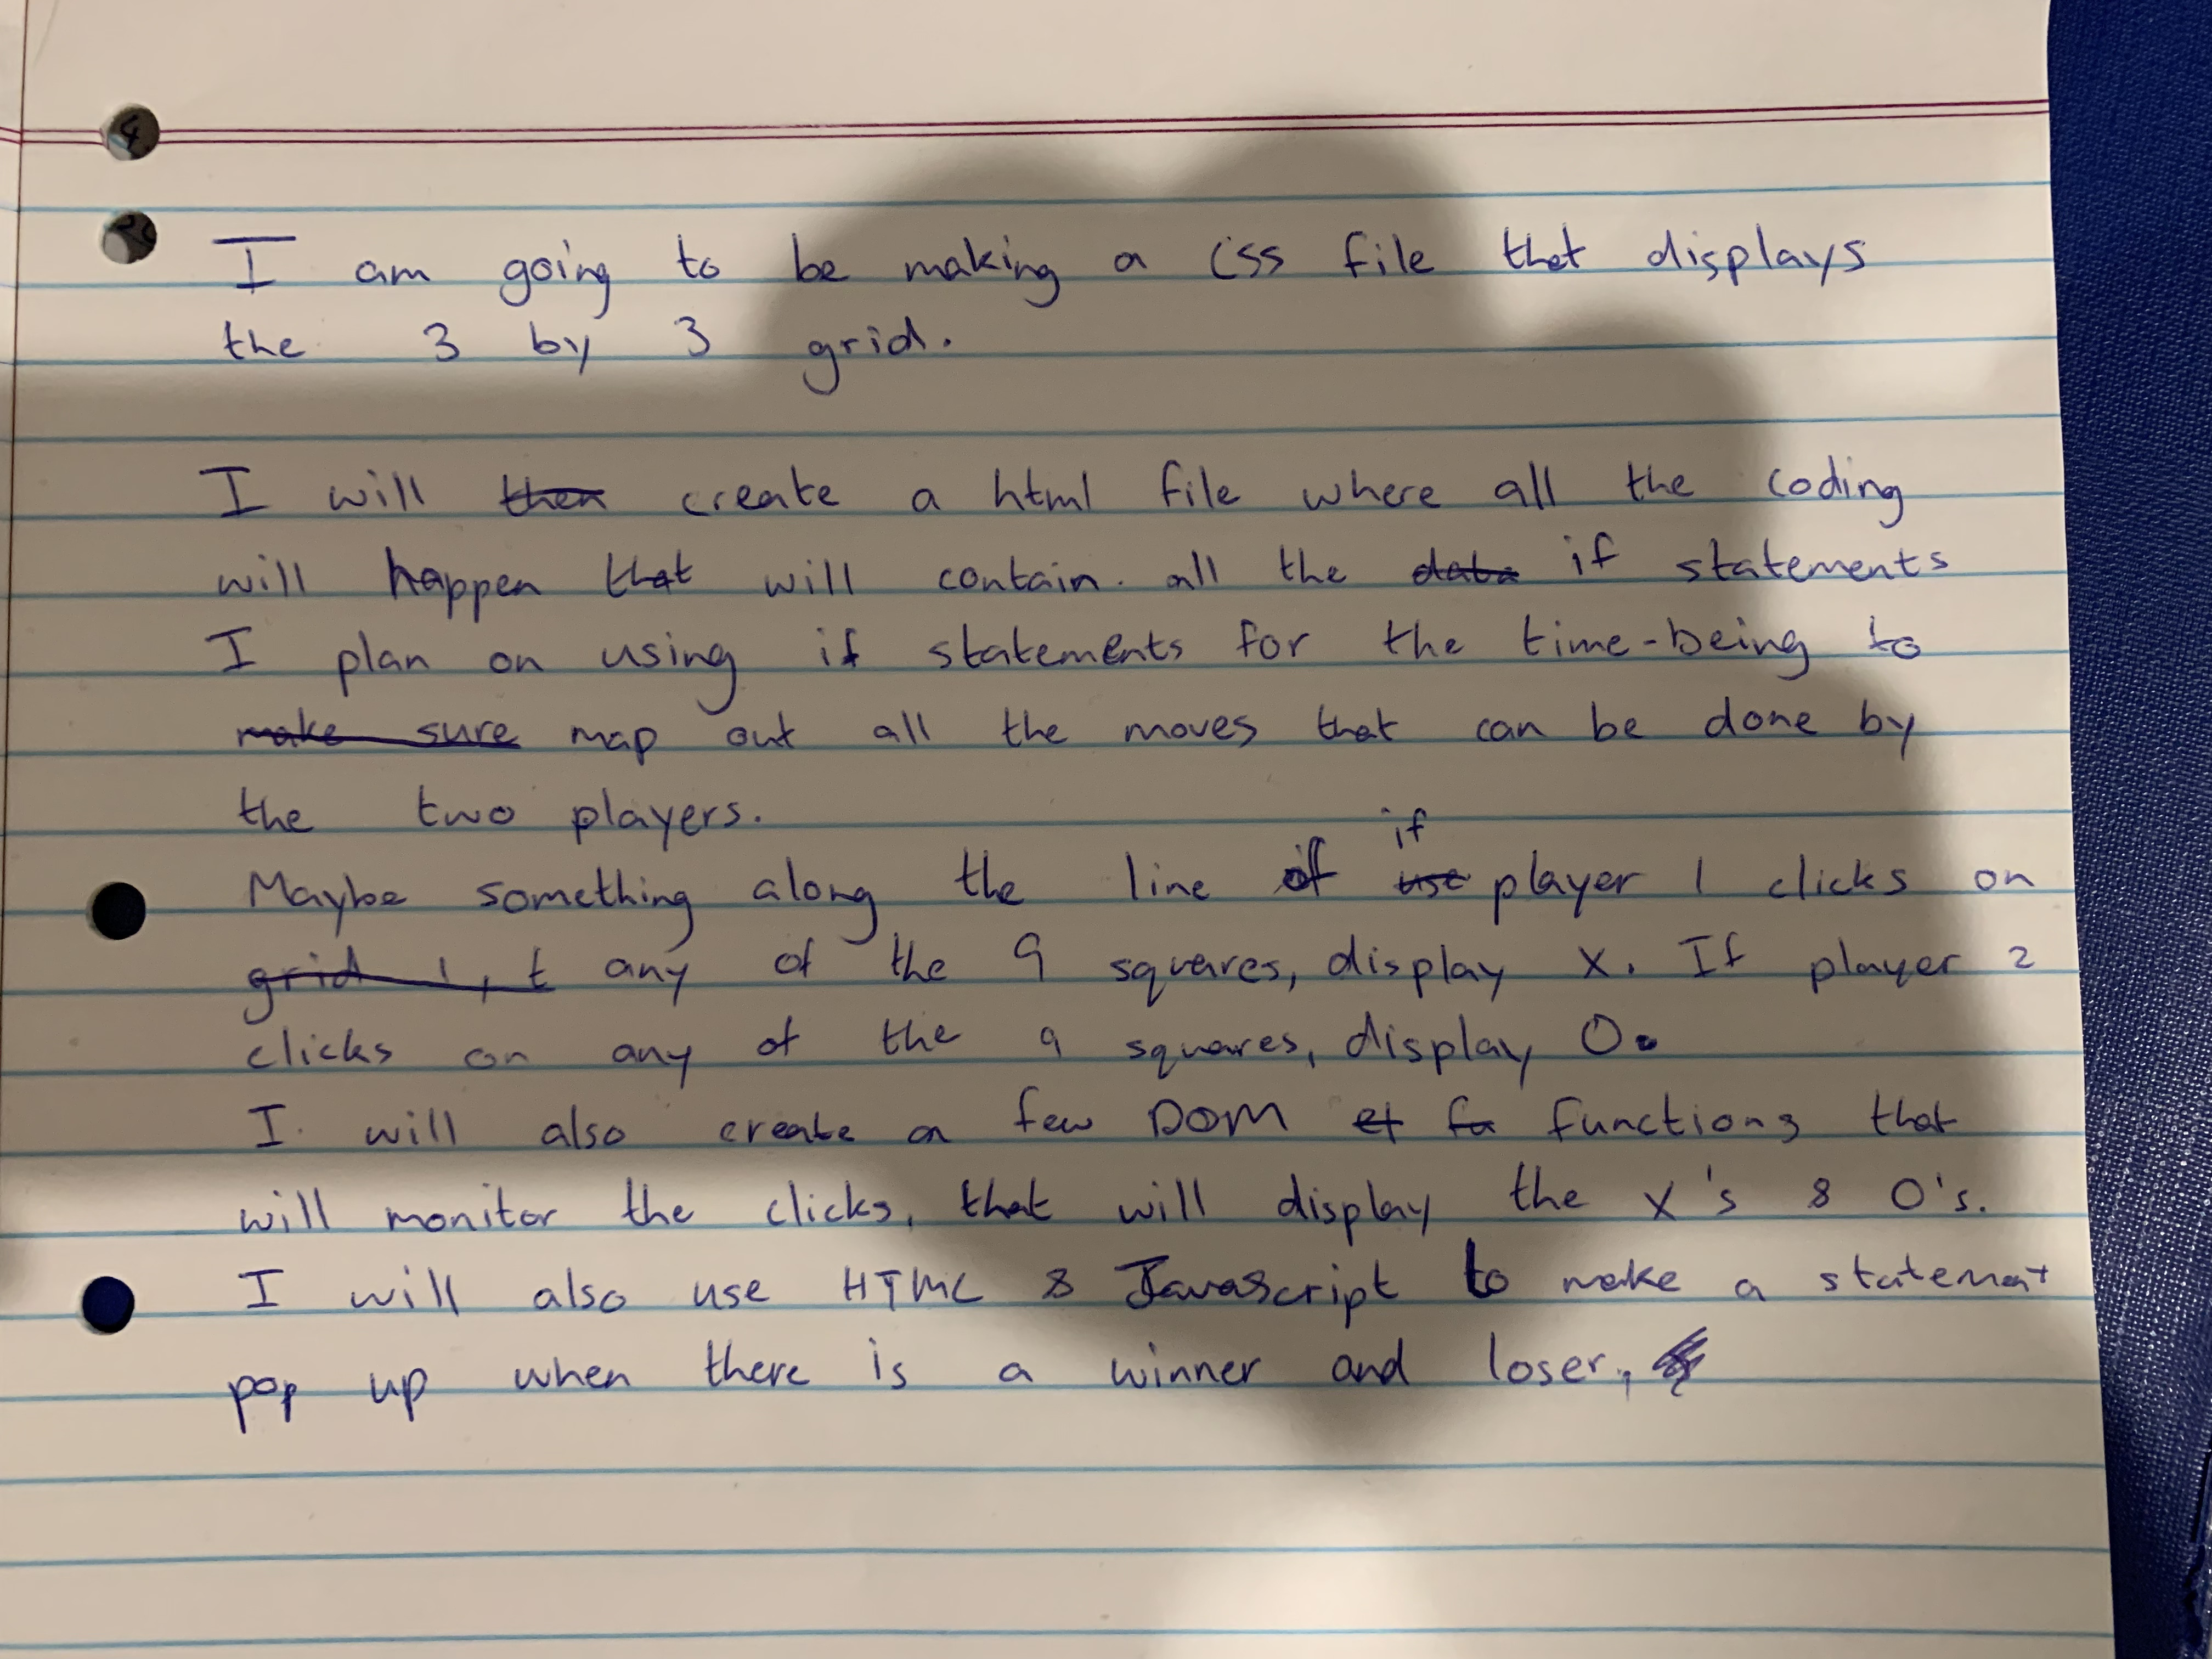 I am going to be making a css file that displays
the 3 by 3 grid.
I will then create a html file where all the coding
will happen that will contain. all the data if statements
I plan on using if statements for the time-being to
make sure map out all the moves that can be done by
the two players.
if
Maybe something along the line of use player 1 clicks on
grid 1, t any of the 9 squares, display X. If player 2
clicks on any of the 9 squares, display O.
I will also create a few DOM et fa functions that
will monitor the clicks, that will display the X's & O's.
I will also use HTML & Javascript to make a statement
pop up when there is a winner and loser,